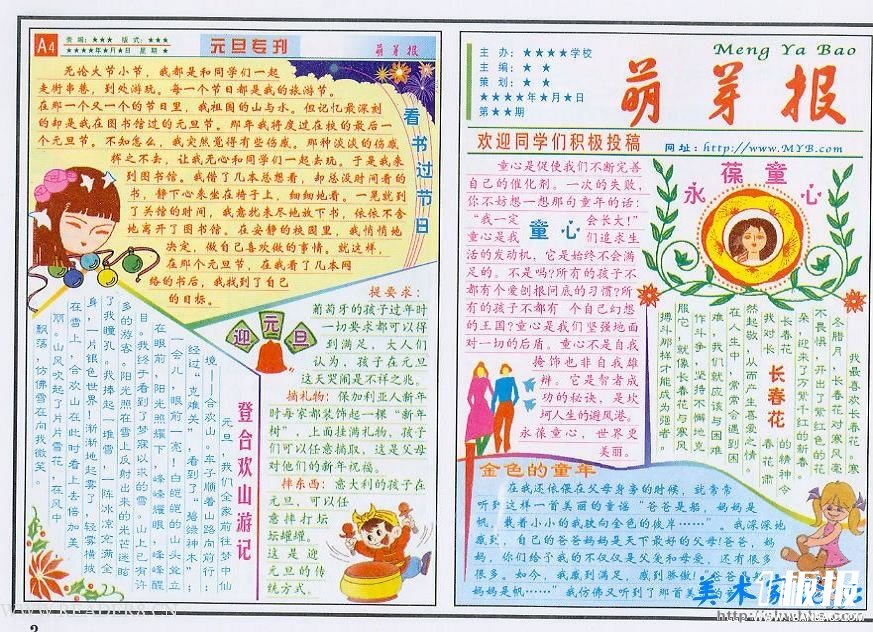 A4
责编：★★★ 版式：★★★
★★★★年★月★日 星期★
元旦专刊
萌芽报
看书过节日
无论大节小节，我都是和同学们一起
走街串巷，到处游玩。每一个节日都是我的旅游节。
在那一个又一个的节日里，我祖国的山与水。但记忆最深刻
的却是我在图书馆过的元旦节。那年我将度过在校的最后一
个元旦节。不知怎么，我突然觉得有些伤感。那种淡淡的伤感
挥之不去，让我无心和同学们一起去玩。于是我来
到图书馆。我借了几本总想看，却总没时间看的
书，静下心来坐在椅子上，细细地看。一晃就到
了关馆的时间，我意犹未尽地放下书，依依不舍
地离开了图书馆。在安静的校园里，我悄悄地
决定，做自己喜欢做的事情。就这样，
在那个元旦节，在我看了几本网
络的书后，我找到了自己
的目标。
迎元旦
提要求：
葡萄牙的孩子过年时
一切要求都可以得
到满足，大人们
认为，孩子在元旦
这天哭闹是不祥之兆。
摘礼物：保加利亚人新年
时每家都装饰起一棵“新年
树”，上面挂满礼物，孩子
们可以任意摘取，这是父母
对他们的新年祝福。
摔东西：意大利的孩子在
元旦，可以任
意摔打坛
坛罐罐。
这是迎
元旦的传
统方式。
登合欢山游记
元旦，我们全家前往梦中仙
境——合欢山。车子顺着山路向前行；
经过“克难关”，看到了“碧绿神木”；
一会儿，眼前一亮！白皑皑的山头耸立
在眼前，阳光照耀下，峰峰耀眼，峰峰醒
目。我终于看到了梦寐以求的雪。山上已有许
多的游客。阳光照在雪上反射出来的光芒眩
了我瞳孔。我捧起一堆雪，一阵冰凉充满全
身，一片银色世界！渐渐地起雾了，轻雾横披
在雪上，合欢山在此时看上去倍加美
丽。山风吹起了片片雪花，在风中
飘落，仿佛雪在向我微笑。
主办：★★★★学校
主编：★★
策划：★★
★★★★年★月★日
第★★期
Meng Ya Bao
萌芽报
欢迎同学们积极投稿
网址：http://www.MYB.com
童心是促使我们不断完善
自己的催化剂。一次的失败，
你不妨想一想那句童年的话：
“我一定 会长大！”
童心
童心是我 们追求生
活的发动机，它是始终不会满
足的。不是吗?所有的孩子不
都有个爱刨根问底的习惯?所
有的孩子不都有 个自己幻想
的王国?童心是我们坚强地面
对一切的后盾。童心不是自我
掩饰也非自我雄
辩。它是智者成
功的秘诀，是坎
坷人生的避风港。
永葆童心，世界更
美丽。
永葆童心
我最喜欢长春花。寒
冬腊月，长春花对寒风毫
不畏惧，开出了紫红色的花
朵，迎来了万紫千红的新春。
长春花 的精神令
长春花
我对长 春花肃
然起敬，从而产生喜爱之情。
在人生中，常常会遇到困
难，我们就应该与困难
作斗争，坚持不懈地克
服它，就像长春花与寒风
搏斗那样才能成为强者。
金色的童年
在我还依偎在父母身旁的时候，就常常
听到这样一首美丽的童谣“爸爸是船，妈妈是
帆，载着小小的我驶向金色的彼岸……”。我深深地
感到，自己的爸爸妈妈是天下最好的父母！爸爸，妈
妈，你们给予我的不仅仅是父爱和母爱，还有很多
很多。如今，我感到满足，感到骄傲！“爸爸
妈妈是帆……”我仿佛又听到了那首美
美术家
板报
WWW.1BANBAO.COM
2